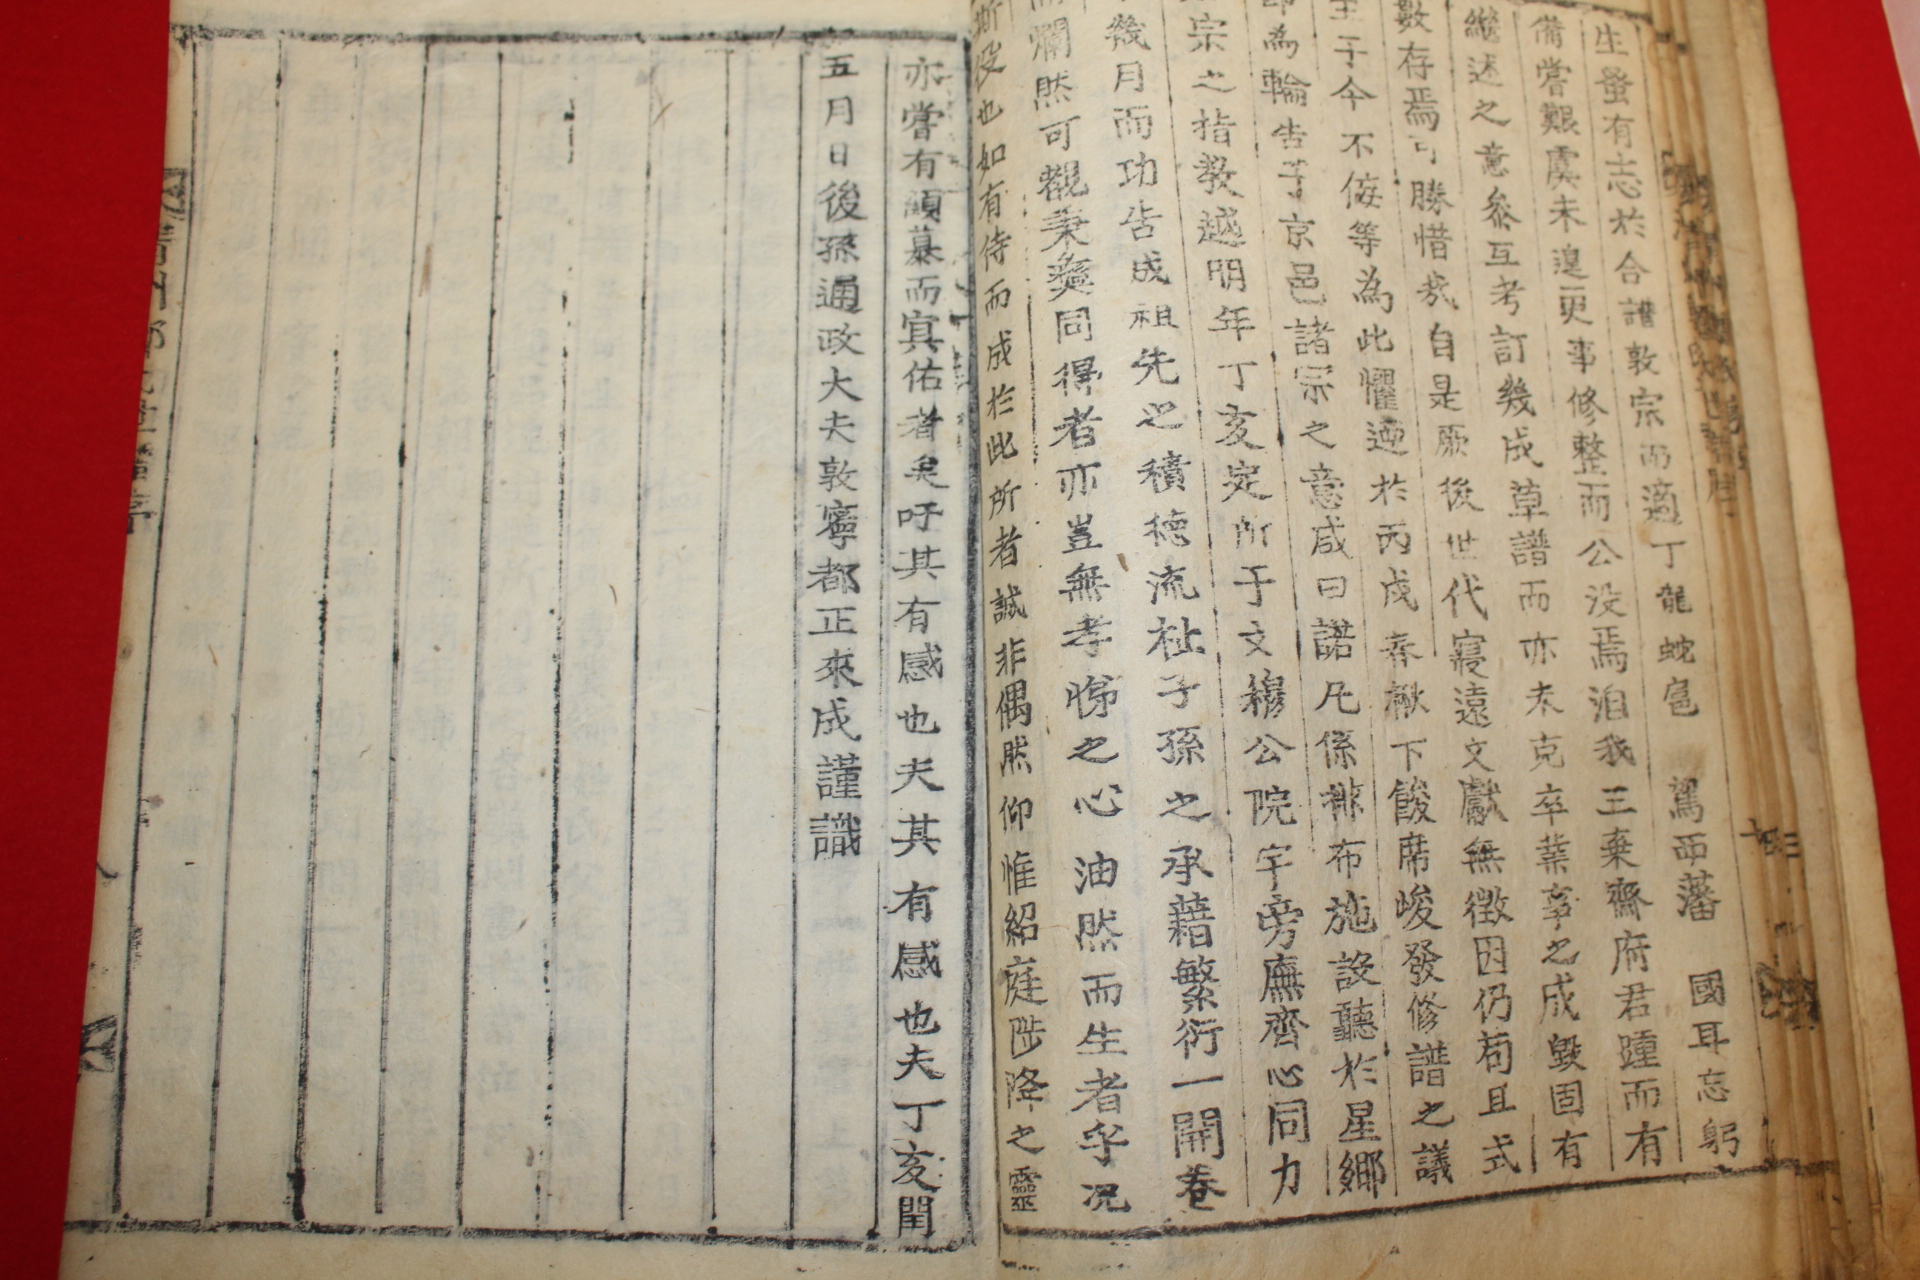 生蚤有志於合譜敦宗而適丁龍蛇邑 駕西藩 國耳忘躬
備嘗艱虞未遑更事修整而公沒焉洎我三棄齋府君踵而有
繼述之意叅互考訂幾成草譜而亦未克卒業事之成毀固有
數存焉可勝惜哉自是厥後世代寢遠文獻無徵因仍苟且式
至于今不侫等為此懼迺於丙戌春楸下餕席峻發修譜之議
即為輪告于京邑諸宗之意咸曰諾凡係排布施設聽於星鄉
宗之指教越明年丁亥定所于文穆公院宇旁廡齊心同力
幾月而功告成祖先之積德流祉子孫之承藉繁衍一開卷
而爛然可觀秉彛同得者亦豈無孝悌之心油然而生者乎况
斯役也如有待而成於此所者誠非偶然仰惟紹庭陟降之靈
亦嘗有顧慕而冥佑者矣吁其有感也夫其有感也夫丁亥閏
五月日後孫通政大夫敦寧都正來成謹識